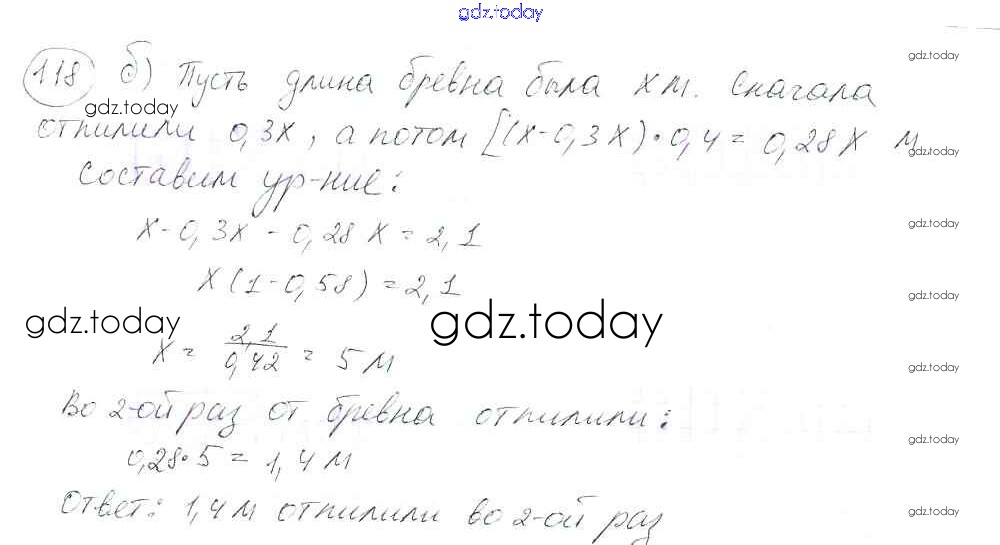 gdz.today
gdz.today
118 б) Пусть длина бревна была х м. Сначала
gdz.today
отпилили 0,3х, а потом [(х-0,3х)•0,4=0,28х м
gdz.today
Составим ур-ние:
gdz.today
х-0,3х-0,28х=2,1
х(1-0,58)=2,1
gdz.today
gdz.today
gdz.today
х = 2,1/0,42 = 5 м
gdz.today
Во 2-ой раз от бревна отпилили:
gdz.today
0,28•5=1,4 м
Ответ: 1,4м отпилили во 2-ой раз
gdz.today